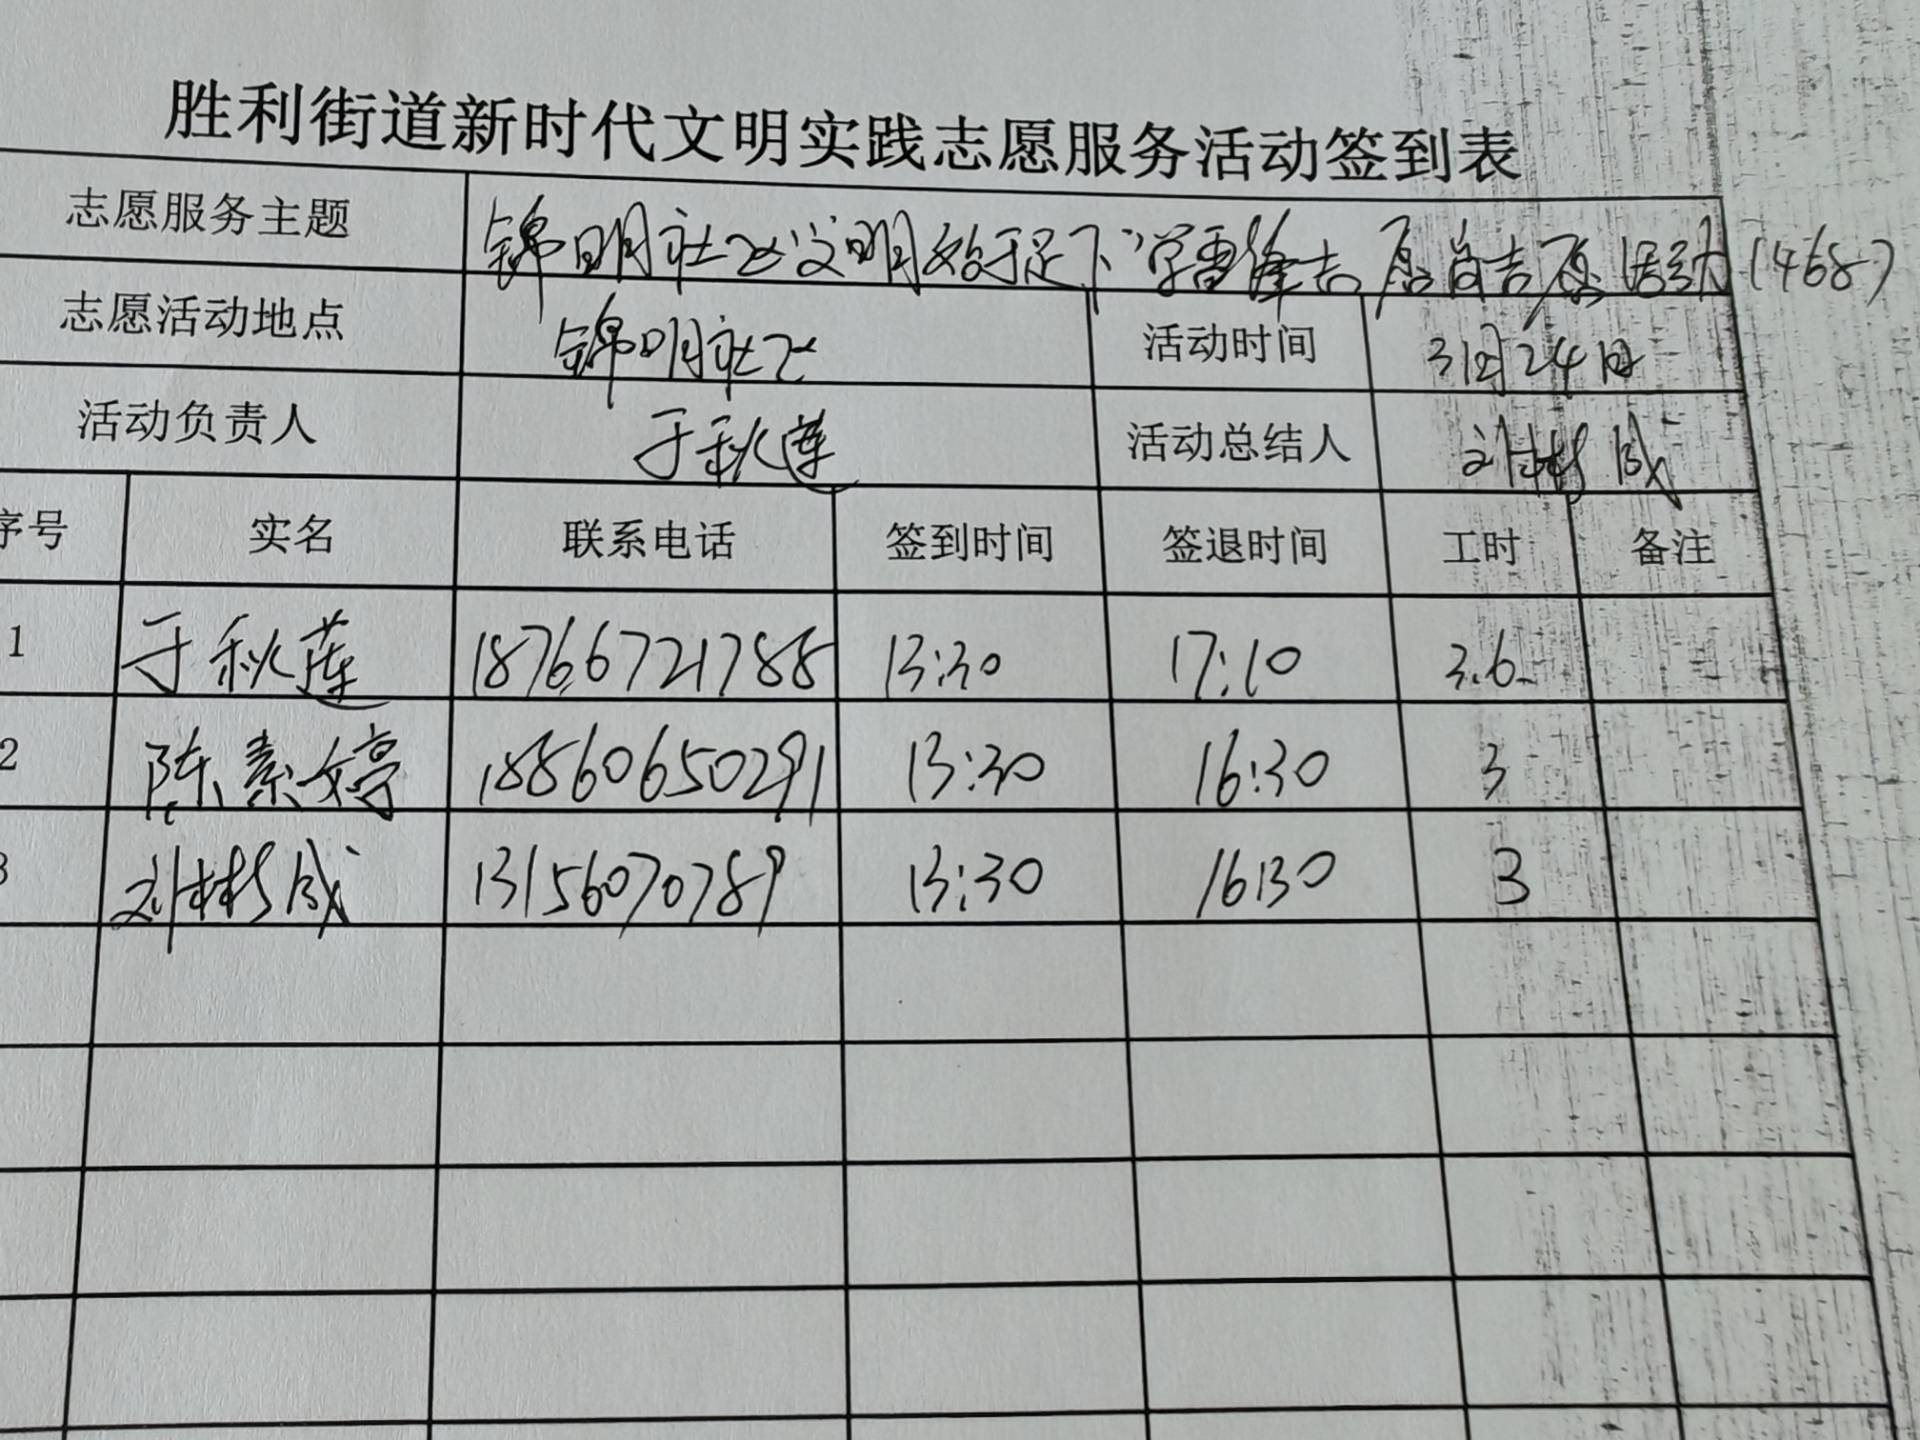 胜利街道新时代文明实践志愿服务活动签到表
志愿服务主题 锦明社区"文明始于足下"学雷锋志愿者志愿活动(468)
志愿活动地点 锦明社区 活动时间 3月24日
活动负责人 于秋莲 活动总结人 刘彬成
序号 实名 联系电话 签到时间 签退时间 工时 备注
1 于秋莲 18766721788 13:30 17:10 3.6
2 陈素婷 18860650291 13:30 16:30 3
3 刘彬成 13156070789 13:30 16:30 3